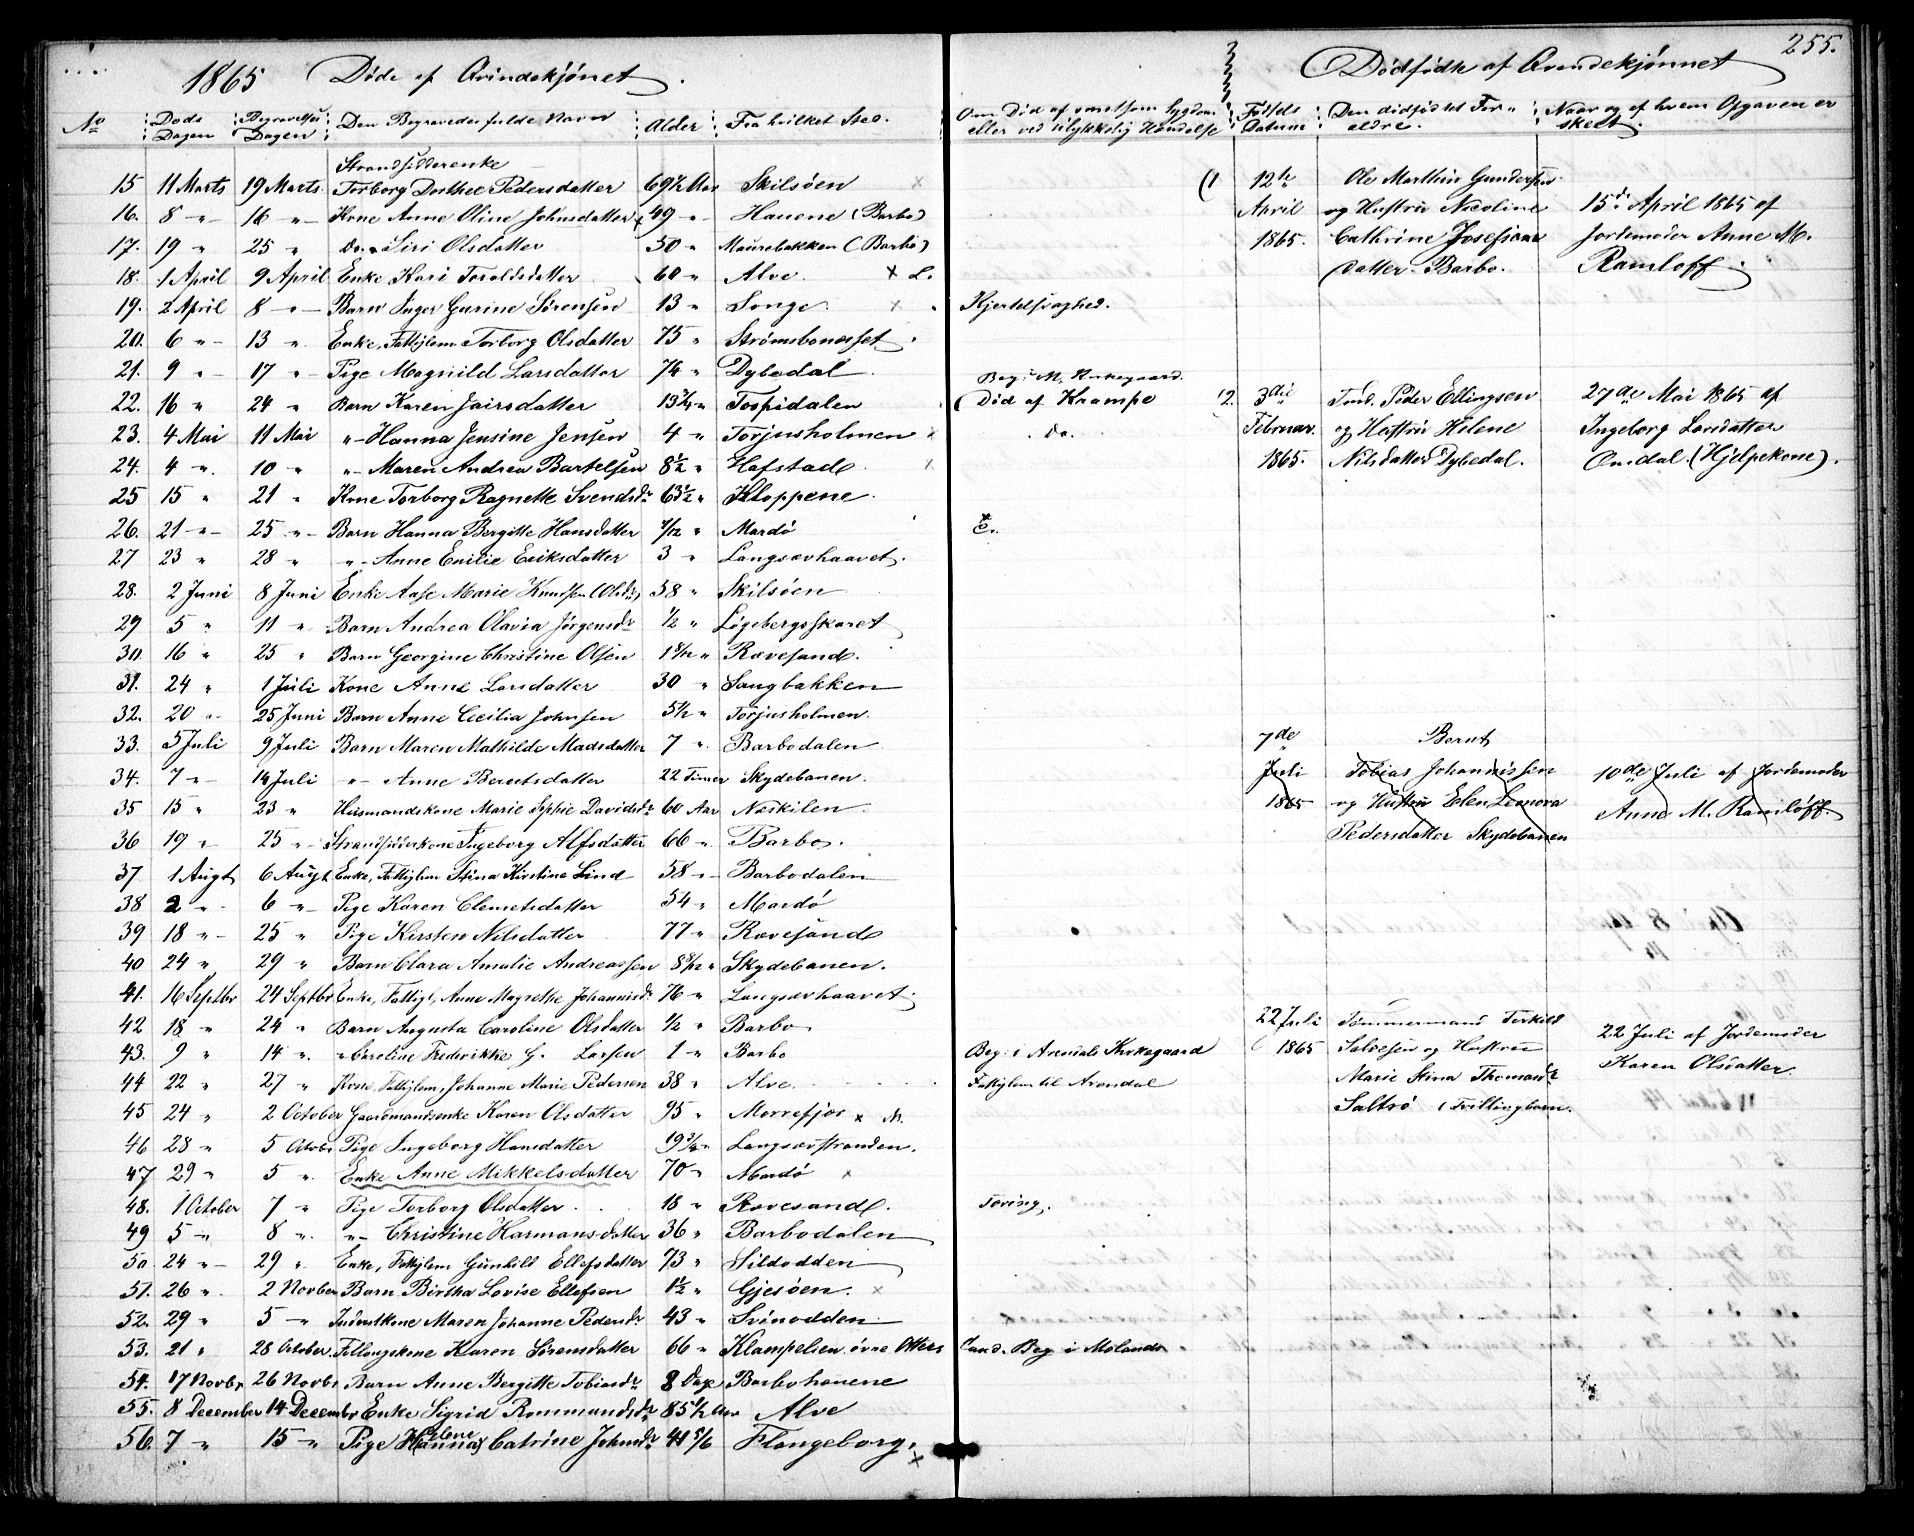 255.
1865 Døde af Qvindekjønet.
No Døds Dagen Begravelses Dagen Den Begravedes fulde Navn Alder Fra hvilket Sted.
Strandsidderenke
15 11 Marts 19 Marts Torborg Dorthee Pedersdatter 69½ Aar Skilsöen ×
16. 8 " 16 " Kone Anne Oline Johnsdatter 49 " Hauene (Barbo)
17. 19 " 25 " do. Siri Olsdatter 50 " Maurebakken (Barbo)
18. 1 April 9 April Enke Kari Toroldsdatter 60 " Alve. × L.
19. 2 April 8 " Barn Inger Gurine Sörensen 13 " Songe × Kjertelsvaghed.
20. 6 " 13 " Enke, Fattiglem Torborg Olsdatter 75 " Strömsbonesset.
21. 9 " 17 " Pige Magnild Larsdatter 74 " Dybedal Beg. i M. Kirkegaard.
22. 16 " 24 " Barn Karen Jairsdatter Tospidalen Död af Krampe
23. 4 Mai 11 Mai " Hanna Jensine Jensen 4 " Torjusholmen × do.
24. 4 " 10 " " Maren Andrea Bartelsen 8½ " Hafstad ×
25 15 " 21 " Kone Torborg Ragnette Svendsdr 63½ " Kloppene.
26. 21 " 25 " Barn Hanna Bergitte Hansdatter 4/12 " Mardö
27 23 " 28 " " Anne Emilie Eriksdatter 3 " Langsævhaavet.
28. 2 Juni 8 Juni Enke Aase Marie Knudsen (Olsdr) 58 " Skilsöen
29 5 " 11 " Barn Andrea Olavia Jörgensdr ½ " Lögebergsskaret
30. 16 " 25 " Barn Georgine Christine Olsen 1 8/12 " Rævesand.
31. 24 " 1 Juli Kone Anne Larsdatter 30 " Sangbakken
32. 20 " 25 Juni Barn Anne Cecilia Johnsen 5½ " Torjusholmen.
33. 5 Juli 9 Juli Barn Maren Mathilde Madsdatter 7 " Barbodalen
34. 7 " 14 Juli " Anne Berntsdatter 22 Timer Skydebanen.
35 15 " 23 " Huusmandskone Marie Sophie Davidsdr 60 Aar Neskilen.
36 19 " 25 " Strandsidderkone Ingeborg Alfsdatter 66 " Barbo.
37 1 Augt 6 Augt Enke, Fattiglem Stina Kirstine Lind 58 " Barbodalen
38 2 " 6 " Pige Karen Clemetsdatter 54 " Mardö
39 18 " 25 " Pige Kirsten Nilsdatter 77 " Rævesand
40 24 " 29 " Barn Clara Amalie Andreassen 8 8/12 " Skydebanen.
41. 16 Septbr 24 Septbr Enke, Fattigl, Anne Magrethe Johannisdr 76 " Langsævhaavet
42 18 " 24 " Barn Augusta Caroline Olsdatter ½ " Barbo
43. 9 " 14 " " Caroline Frederikke G. Larsen 1 " Barbo Beg. i Arendals Kirkegaard
44 22 " 27 " Kone, Fattiglem, Johanne Marie Pedersen 38 " Alve. Fattiglem til Arendal
45 24 " 2 October Gaardmandsenke Karen Olsdatter 95 " Morrefjær × M.
46 28 " 5 Octobr Pige Ingeborg Hansdatter 19¾ " Langsævstranden.
47 29 " 5 " Enke Anne Mikkelsdatter 70 " Mardö ×
48. 1 October 7 " Pige Torborg Olsdatter 18 " Rævesand. Tæring.
49 5 " 8 " " Christine Harmansdatter 36 " Barbodalen
50. 24 " 29 " Enke, Fattiglem Gunhild Ellefsdatter 73 " Sildodden
51. 26 " 2 Novber Barn Birtha Lovise Ellefsen 1½ " Gjesöen. ×
52. 29 " 5 " Inderstkone Maren Johanne Pedersdr 43 " Svinodden
53. 21 " 28 October. Fellougskone Karen Sörensdatter 66 " Klampelien övre Otters land. Beg i Molands
54. 17 Novbr 26 Novbr Barn Anne Bergitte Tobiasdr 8 Dage Barbohauene
55. 8 December 14 December Enke Sigrid Rommundsdr 85½ Aar Alve
56. 7 " 15 " Pige Hanna Catrine Johnsdr 41 5/6 Flangeborg. ×
Om Död af smitsom Sygdom eller ved ulykkelig Hændelse
Dødfødte af Qvindekjønnet
Fødsels Datum Den dødfødtes Forældre. Naar og af hvem Opgaven er skeet.
(1 12te April 1865. Ole Marthin Gundersen og Hustru Nicoline Cathrine Josefiane datter Barbo. 15de April 1865 af Jordemoder Anne M. Ramloff.
(2. 3die Februar. 1865. Tmd. Peder Ellingsen og Hustru Helene Nilsdatter Dybedal. 27de Mai 1865 af Ingeborg Larsdatter Omdal (Hjelpekone).
7de Juli 1865 Bernt Tobias Johannissen og Hustru Elen Leonora Pedersdatter Skydebanen 10de Juli af Jordemoder Anne M. Ramloff.
22 Juli 1865 Tömmermand Terkild Salvesen og Hustru Marie Stina Thomasdr Saltrö (Tvillingbarn. 22 Juli af Jordemoder Karen Olsdatter.